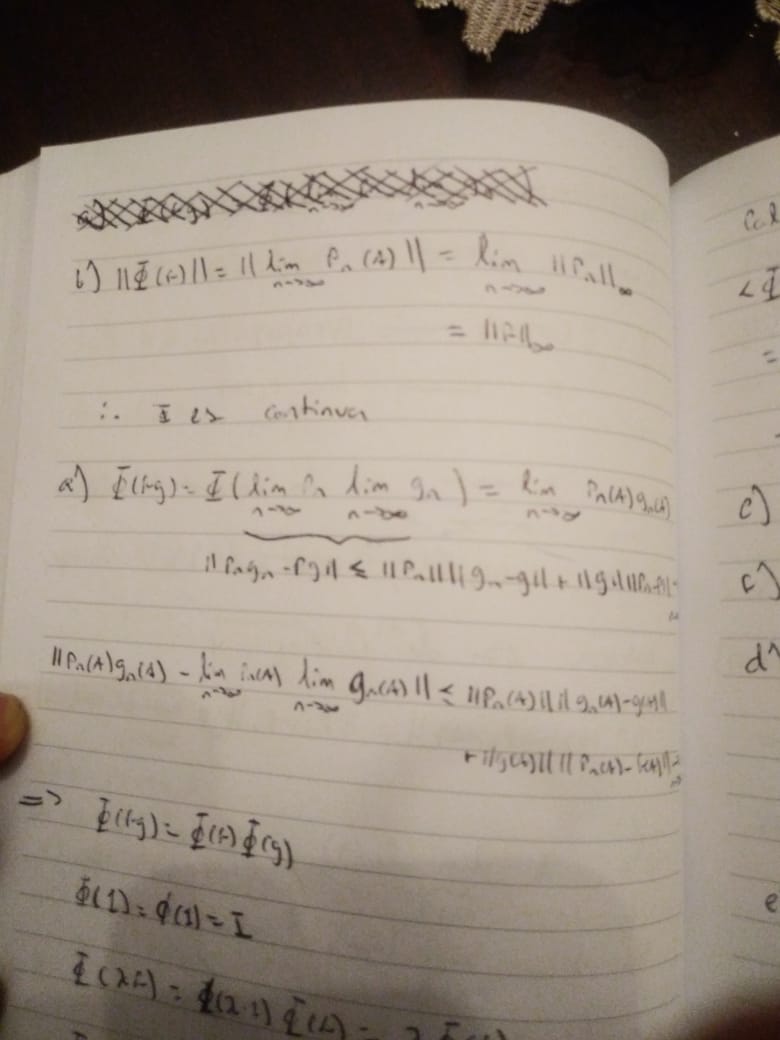 b) ||Φ(f)|| = || lim n→∞ Pn(A) || = lim n→∞ ||Pn||∞
= ||f||∞
∴ Φ es continua
a) Φ(fg) = Φ( lim n→∞ Pn lim n→∞ gn ) = lim n→∞ Pn(A) gn(A)
||Pn gn - fg|| ≤ ||Pn|| ||gn - g|| + ||g|| ||Pn - f||
||Pn(A) gn(A) - lim n→∞ Pn(A) lim n→∞ gn(A) || ≤ ||Pn(A)|| || gn(A) - g(A)||
+ ||g(A)|| || Pn(A) - f(A)||
=> Φ(fg) = Φ(f) Φ(g)
Φ(1) = ϕ(1) = I
Φ(λf) = ϕ(λ·1) Φ(f) =
c)
c)
d)
e